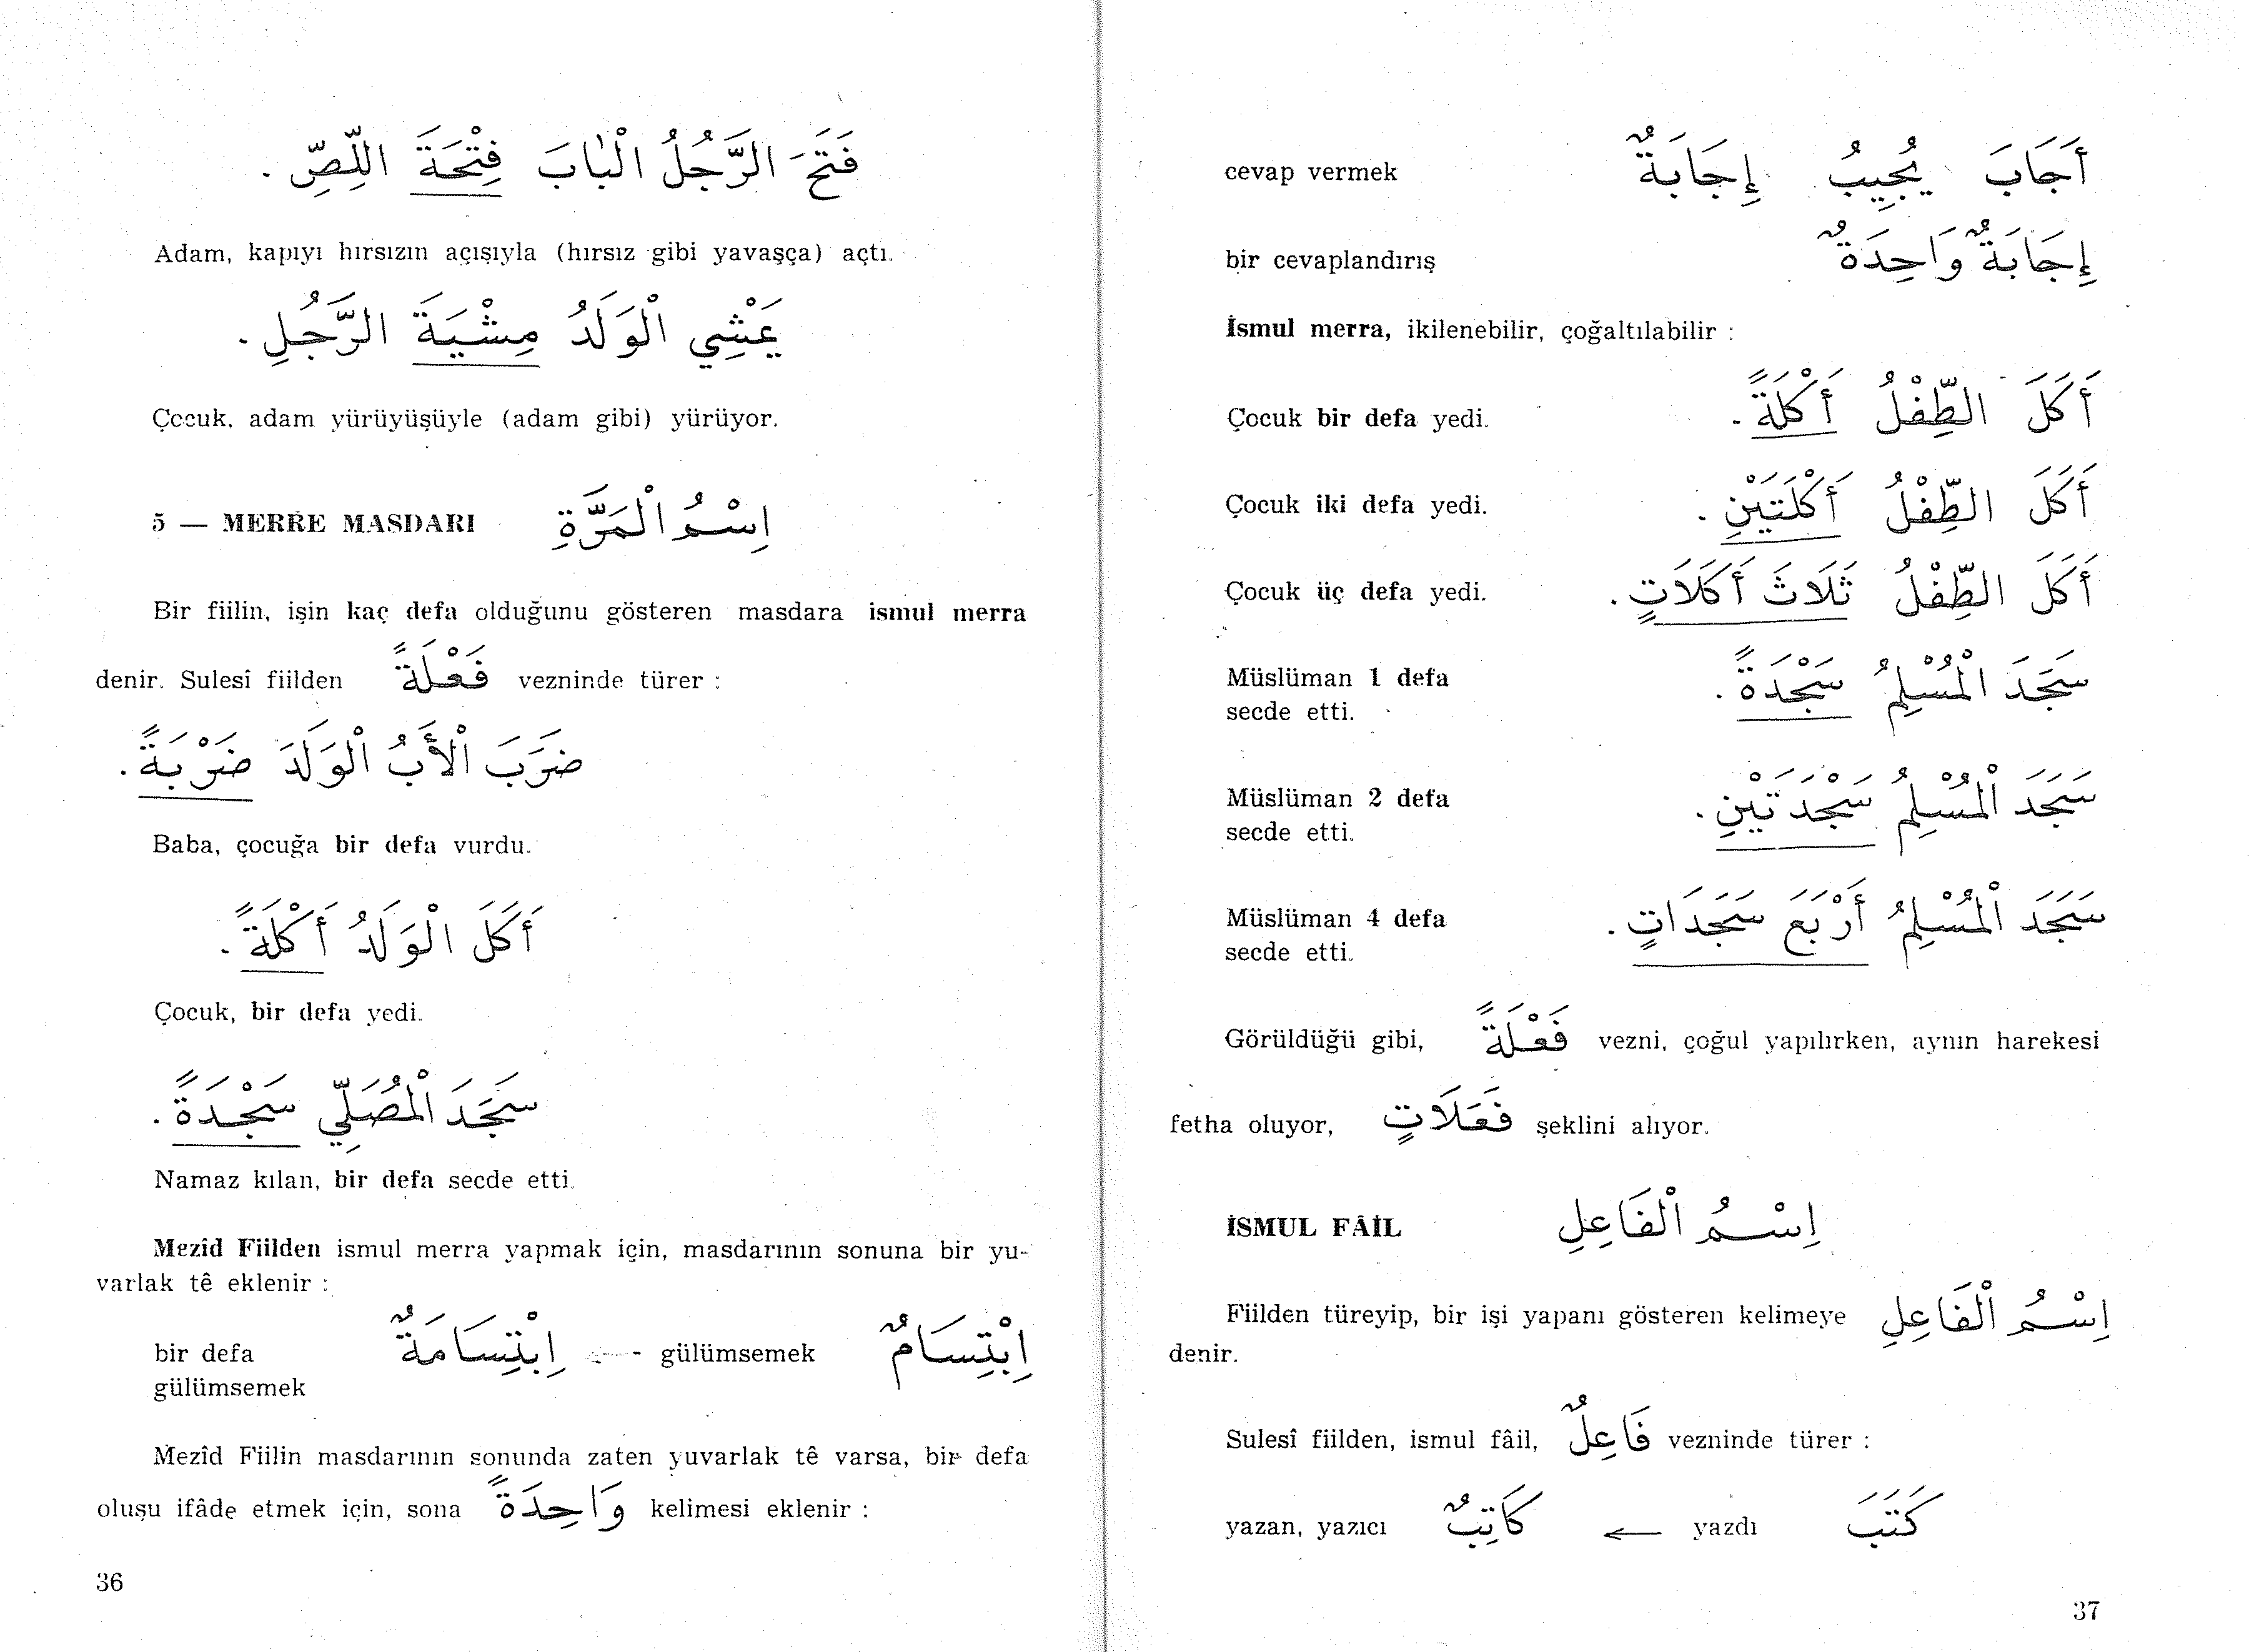 فَتَحَ الرَّجُلُ الْبَابَ فِتْحَةَ اللِّصِّ .
Adam, kapıyı hırsızın açışıyla (hırsız gibi yavaşça) açtı.
يَمْشِي الْوَلَدُ مِشْيَةَ الرَّجُلِ .
Çocuk, adam yürüyüşüyle (adam gibi) yürüyor.
5 — MERRE MASDARI اِسْمُ الْمَرَّةِ
Bir fiilin, işin kaç defa olduğunu gösteren masdara ismul merra
denir. Sulesî fiilden فَعْلَةً vezninde türer :
ضَرَبَ الْأَبُ الْوَلَدَ ضَرْبَةً .
Baba, çocuğa bir defa vurdu.
أَكَلَ الْوَلَدُ أَكْلَةً .
Çocuk, bir defa yedi.
سَجَدَ الْمُصَلِّي سَجْدَةً .
Namaz kılan, bir defa secde etti.
Mezîd Fiilden ismul merra yapmak için, masdarının sonuna bir yu-
varlak tê eklenir :
bir defa اِبْتِسَامَةٌ <--- gülümsemek اِبْتِسَامٌ
gülümsemek
Mezîd Fiilin masdarının sonunda zaten yuvarlak tê varsa, bir defa
oluşu ifâde etmek için, sona وَاحِدَةً kelimesi eklenir :
36
cevap vermek أَجَابَ يُجِيبُ إِجَابَةٌ
bir cevaplandırış إِجَابَةٌ وَاحِدَةٌ
İsmul merra, ikilenebilir, çoğaltılabilir :
Çocuk bir defa yedi. أَكَلَ الطِّفْلُ أَكْلَةً .
Çocuk iki defa yedi. أَكَلَ الطِّفْلُ أَكْلَتَيْنِ .
Çocuk üç defa yedi. أَكَلَ الطِّفْلُ ثَلَاثَ أَكَلَاتٍ .
Müslüman 1 defa سَجَدَ الْمُسْلِمُ سَجْدَةً .
secde etti.
Müslüman 2 defa سَجَدَ الْمُسْلِمُ سَجْدَتَيْنِ .
secde etti.
Müslüman 4 defa سَجَدَ الْمُسْلِمُ أَرْبَعَ سَجَدَاتٍ .
secde etti.
Görüldüğü gibi, فَعْلَةً vezni, çoğul yapılırken, aynın harekesi
fetha oluyor, فَعَلَاتٍ şeklini alıyor.
İSMUL FÂİL اِسْمُ الْفَاعِلِ
Fiilden türeyip, bir işi yapanı gösteren kelimeye اِسْمُ الْفَاعِلِ
denir.
Sulesî fiilden, ismul fâil, فَاعِلٌ vezninde türer :
yazan, yazıcı كَاتِبٌ <— yazdı كَتَبَ
37